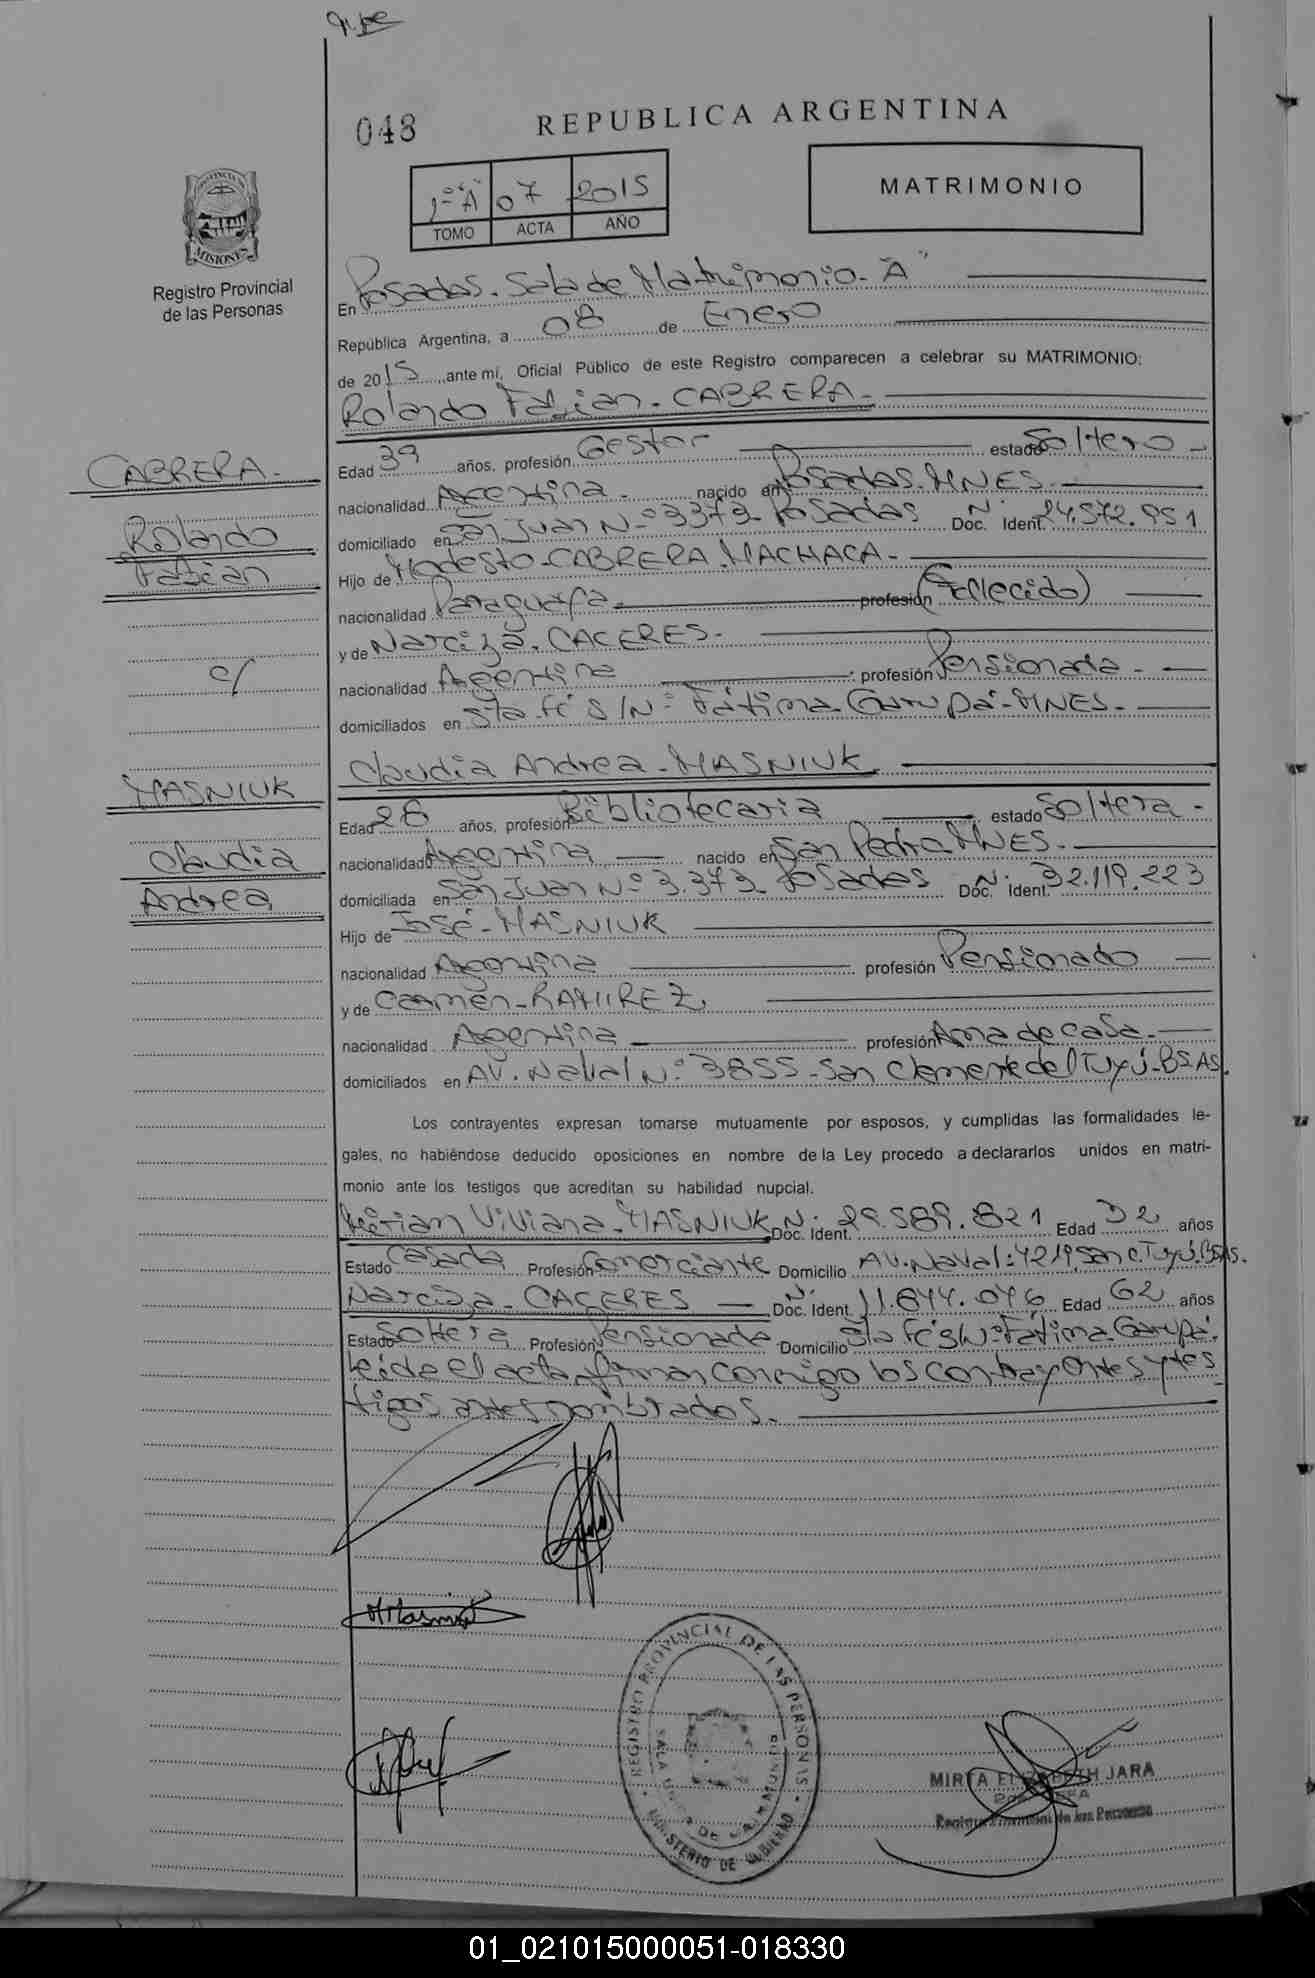 048
REPUBLICA ARGENTINA
1º "A" 07 2015
TOMO ACTA AÑO
MATRIMONIO
PROVINCIA DE MISIONES
Registro Provincial
de las Personas
En Posadas - Sala de Matrimonio - "A"
República Argentina, a 08 de Enero
de 2015, ante mí, Oficial Público de este Registro comparecen a celebrar su MATRIMONIO:
Rolando Fabian - CABRERA -
CABRERA -
Rolando
Fabian
c/
MASNIUK
Claudia
Andrea
Edad 39 años, profesión Gestor estado Soltero -
nacionalidad Argentina - nacido en Posadas. MNES. -
domiciliado en San Juan Nº 3373 - Posadas Doc. Ident. Nº 24.572.951
Hijo de Modesto - CABRERA MACHACA -
nacionalidad Paraguaya - profesión (Fallecido)
y de Narciza - CACERES -
nacionalidad Argentina profesión Pensionada -
domiciliados en Sta. Fé S/Nº Fátima - Garupá - MNES -
Claudia Andrea - MASNIUK
Edad 28 años, profesión Bibliotecaria estado Soltera -
nacionalidad Argentina nacido en San Pedro MNES. -
domiciliada en San Juan Nº 3.373 - Posadas Doc. Ident. Nº 32.119.223
Hijo de José - MASNIUK
nacionalidad Argentina profesión Pensionado
y de Carmen - RAMIREZ
nacionalidad Argentina profesión Ama de casa -
domiciliados en AV. Naval Nº 3855 - San Clemente del Tuyú - BS AS.
Los contrayentes expresan tomarse mutuamente por esposos, y cumplidas las formalidades le-
gales, no habiéndose deducido oposiciones en nombre de la Ley procedo a declararlos unidos en matri-
monio ante los testigos que acreditan su habilidad nupcial.
Mirian Viviana - MASNIUK Doc. Ident. Nº 29.589.821 Edad 32 años
Estado Casada Profesión Comerciante Domicilio AV. Naval: 4219 San C. Tuyú. BS AS.
Narciza - CACERES - Doc. Ident. Nº 11.644.046 Edad 62 años
Estado Soltera Profesión Pensionada Domicilio Sta Fé S/Nº Fátima Garupá.
Leída el acta firman conmigo los contrayentes y tes
tigos antes nombrados. -
REGISTRO PROVINCIAL DE LAS PERSONAS
MINISTERIO DE GOBIERNO
MIRTA ELIZABETH JARA
01_021015000051-018330